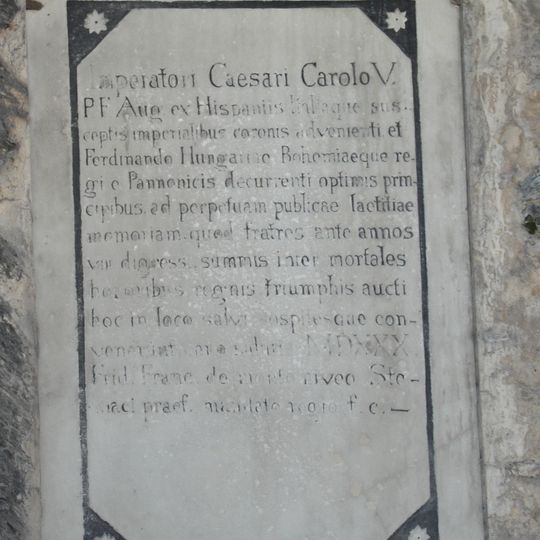 Imperatori Caesari Carolo V.
P F Aug ex Hispaniis Italiaque sus-
ceptis imperialibus coronis advenienti et
Ferdinando Hungariae Bohemiaeque re-
gi e Pannonicis decurrenti optimis prin-
cipibus ad perpetuam publicae laetitiae
memoriam quod fratres ante annos
VIII digress summis inter mortales
honoribus regnis triumphis aucti
hoc in loco salvi ospitesque con-
MDXXX
Frid. Franc. de monte niveo Ste-
praef. mandato regio f. c. —